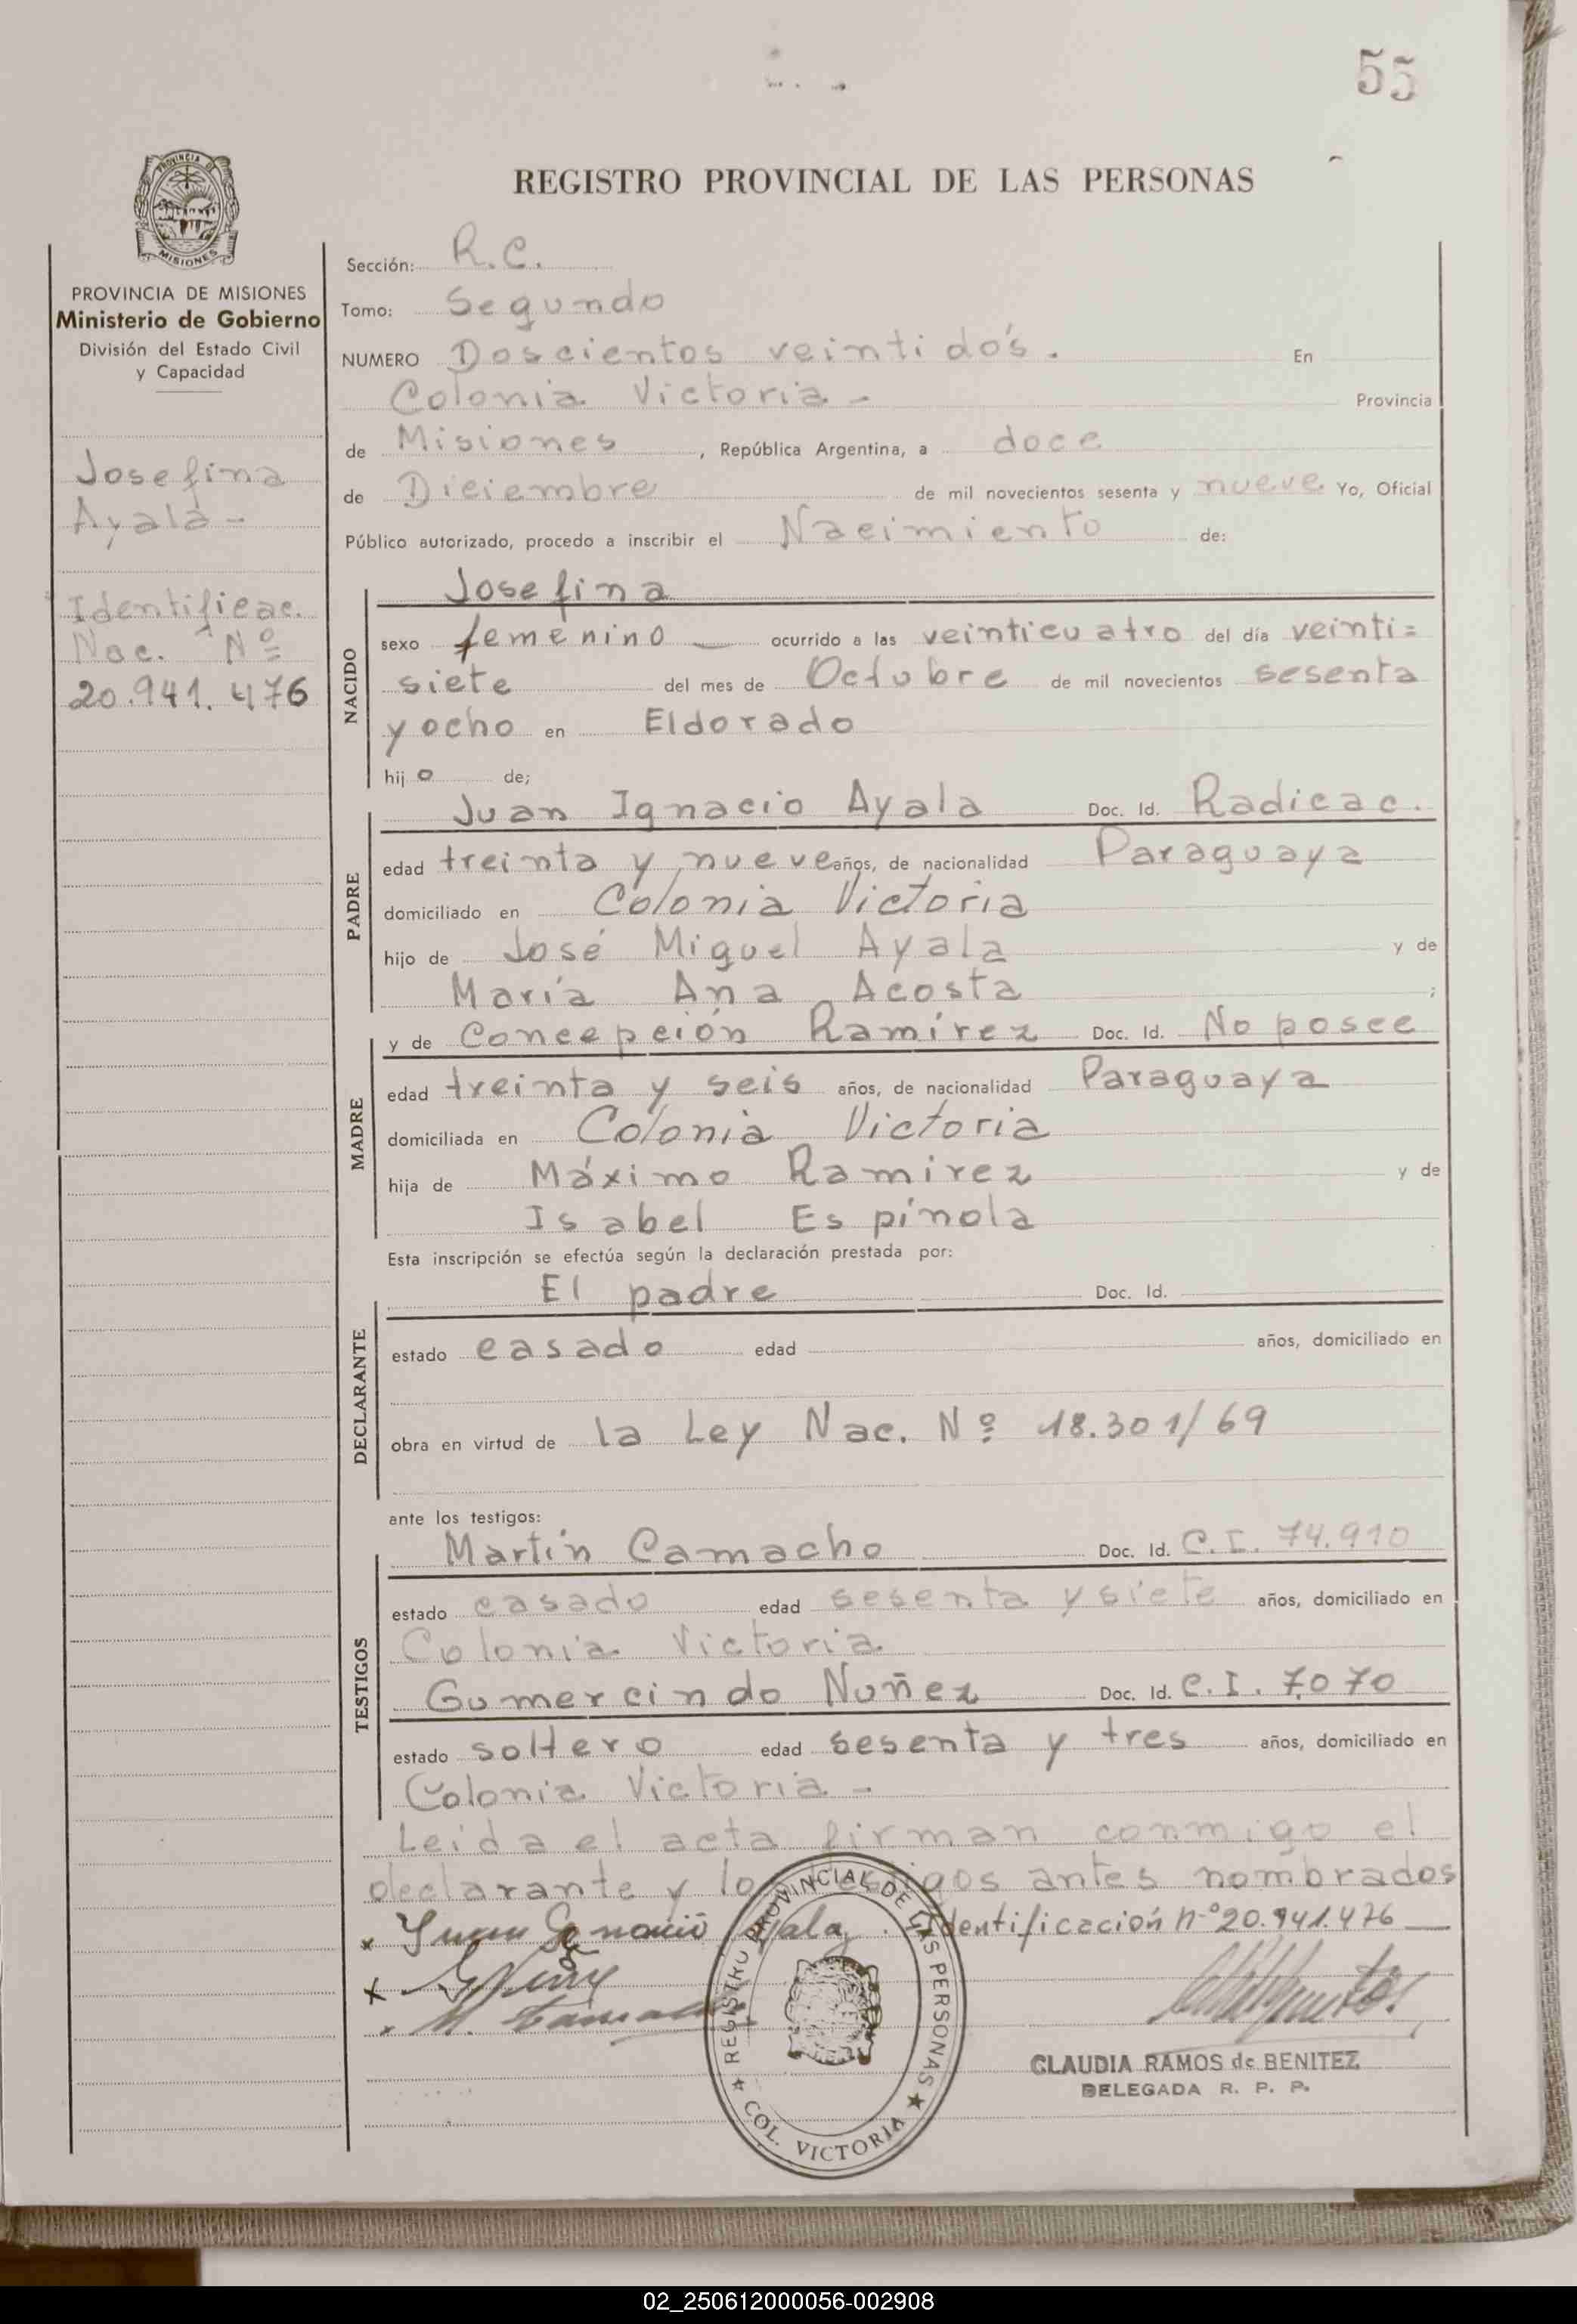 55
REGISTRO PROVINCIAL DE LAS PERSONAS
PROVINCIA DE MISIONES
PROVINCIA DE MISIONES
Ministerio de Gobierno
División del Estado Civil
y Capacidad
Josefina
Ayala -
Identificac.
Nac. Nº
20.941.476
Sección: R.C.
Tomo: Segundo
NUMERO Doscientos veintidós. En
Colonia Victoria - Provincia
de Misiones, República Argentina, a doce
de Diciembre de mil novecientos sesenta y nueve Yo, Oficial
Público autorizado, procedo a inscribir el Nacimiento de:
NACIDO
Josefina
sexo femenino — ocurrido a las veinticuatro del día veinti=
siete del mes de Octubre de mil novecientos sesenta
y ocho en Eldorado
hijo de;
PADRE
Juan Ignacio Ayala Doc. Id. Radicac.
edad treinta y nueve años, de nacionalidad Paraguaya
domiciliado en Colonia Victoria
hijo de José Miguel Ayala y de
María Ana Acosta ;
MADRE
y de Concepción Ramírez Doc. Id. No posee
edad treinta y seis años, de nacionalidad Paraguaya
domiciliada en Colonia Victoria
hija de Máximo Ramirez y de
Isabel Espínola
Esta inscripción se efectúa según la declaración prestada por:
DECLARANTE
El padre Doc. Id.
estado casado edad años, domiciliado en
obra en virtud de la Ley Nac. Nº 18.301/69
ante los testigos:
TESTIGOS
Martín Camacho Doc. Id. C.I. 74.910
estado casado edad sesenta y siete años, domiciliado en
Colonia Victoria
Gumercindo Nuñez Doc. Id. C.I. 7.070
estado soltero edad sesenta y tres años, domiciliado en
Colonia Victoria -
Leída el acta firman conmigo el
declarante y los testigos antes nombrados
x Juan Ignacio Ayala. Identificación nº 20.941.476
x
M. Camacho
REGISTRO PROVINCIAL DE LAS PERSONAS
COL. VICTORIA
CLAUDIA RAMOS de BENITEZ
DELEGADA R. P. P.
02_250612000056-002908